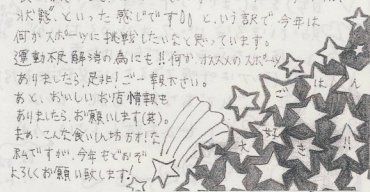 状態”、といった感じです!! という訳で今年は
何かスポーツに挑戦したいなと思っています。
運動不足解消の為にも!!何かオススメのスポーツ
ありましたら、是非!ご一報下さい。
あと、おいしいお店情報も
ありましたら、お願いします(笑)。
まぁ、こんな食いしん坊万才!な
私ですが、今年もどうぞ
よろしくお願い致します!
ごはん
大好き!!